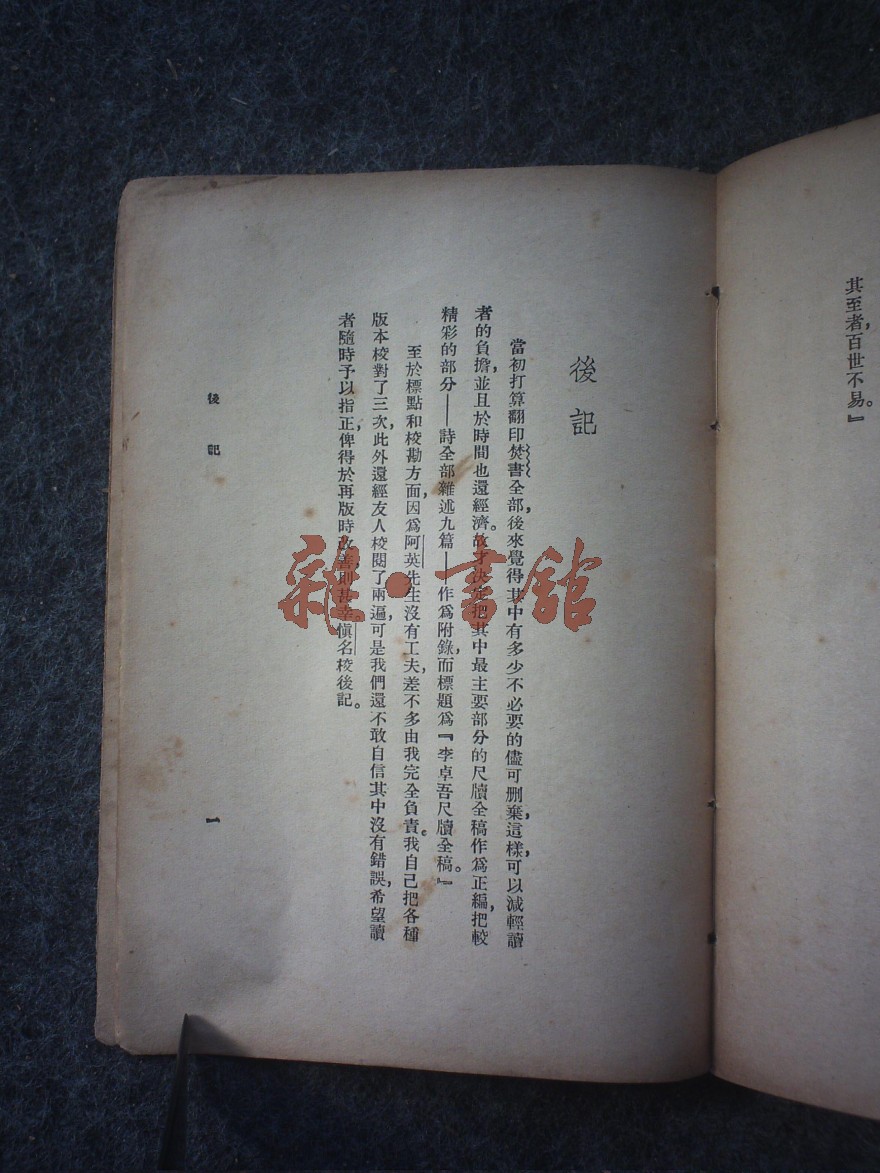 其至者，百世不易。』
後記
當初打算翻印焚書全部，後來覺得其中有多少不必要的儘可删棄，這樣，可以減輕讀
者的負擔，並且於時間也還經濟。故才決定把其中最主要部分的尺牘全稿作爲正編，把較
精彩的部分——詩全部雜述九篇——作爲附錄，而標題爲『李卓吾尺牘全稿。』
至於標點和校勘方面，因爲阿英先生沒有工夫，差不多由我完全負責。我自己把各種
版本校對了三次，此外還經友人校閱了兩遍，可是我們還不敢自信其中沒有錯誤，希望讀
者隨時予以指正，俾得於再版時改善，則甚幸。愼名校後記。
後記
一
雜·書館